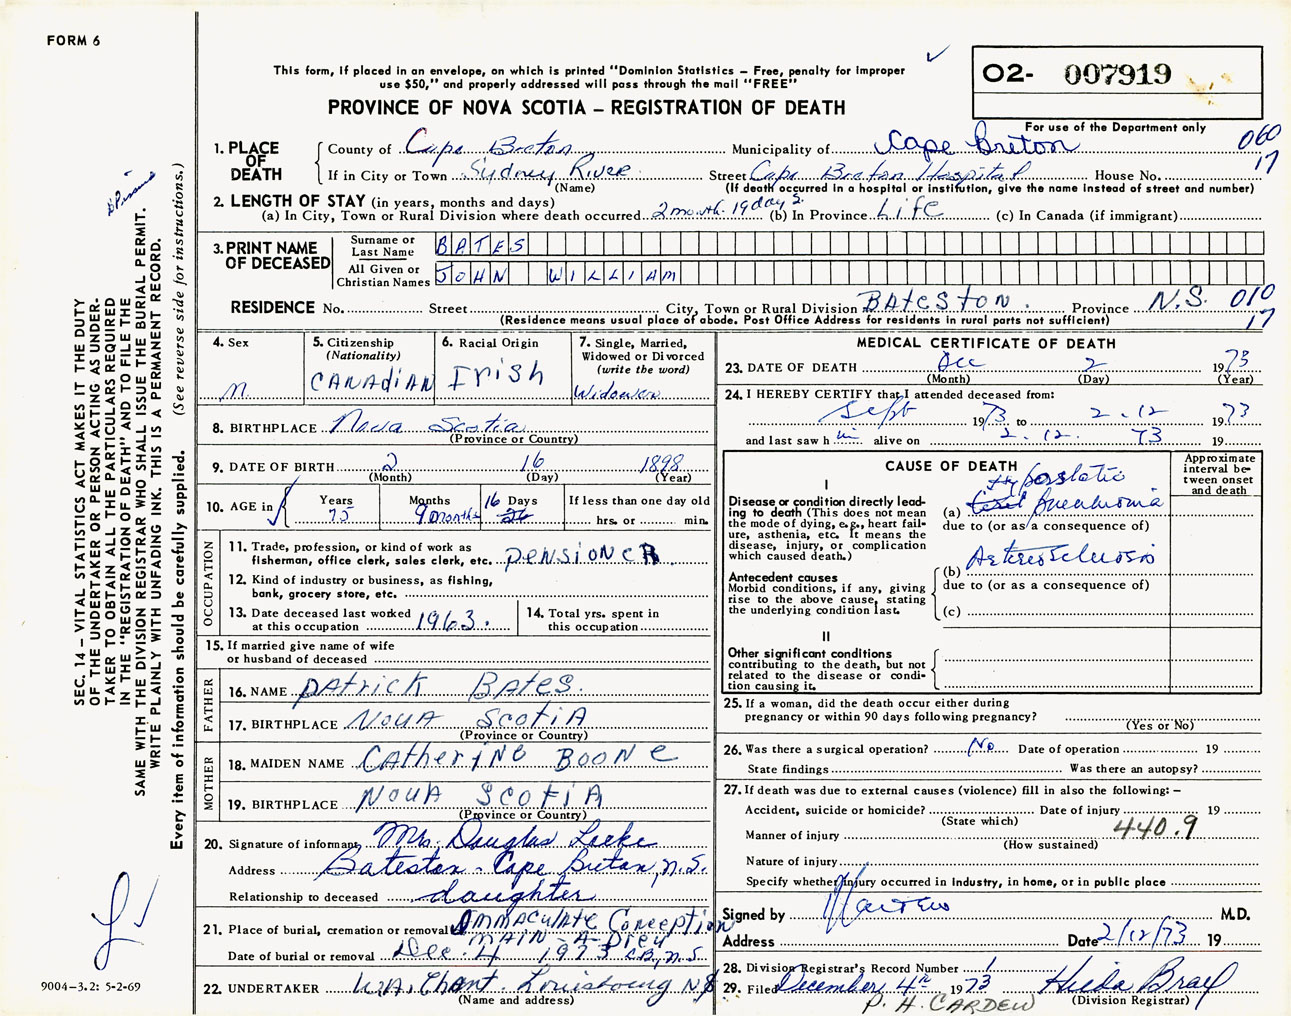 FORM 6
This form, if placed in an envelope, on which is printed "Dominion Statistics – Free, penalty for improper
use $50," and properly addressed will pass through the mail "FREE"
O2- 007919
PROVINCE OF NOVA SCOTIA – REGISTRATION OF DEATH
For use of the Department only
060
17
1. PLACE OF DEATH
County of Cape Breton Municipality of Cape Breton
If in City or Town Sydney River Street Cape Breton Hospital House No.
(Name) (If death occurred in a hospital or institution, give the name instead of street and number)
2. LENGTH OF STAY (in years, months and days)
(a) In City, Town or Rural Division where death occurred 2 month. 19 days. (b) In Province Life (c) In Canada (if immigrant)
3. PRINT NAME OF DECEASED
Surname or Last Name BATES
All Given or Christian Names JOHN WILLIAM
RESIDENCE No. Street City, Town or Rural Division BAteston. Province N.S. 010
17
(Residence means usual place of abode. Post Office Address for residents in rural parts not sufficient)
4. Sex
M.
5. Citizenship
(Nationality)
CANADIAN
6. Racial Origin
Irish
7. Single, Married,
Widowed or Divorced
(write the word)
Widower
8. BIRTHPLACE Nova Scotia
(Province or Country)
9. DATE OF BIRTH 2 16 1898
(Month) (Day) (Year)
10. AGE in Years Months Days If less than one day old
75 9 months 16 hrs. or min.
OCCUPATION
11. Trade, profession, or kind of work as
fisherman, office clerk, sales clerk, etc. PENSIONER
12. Kind of industry or business, as fishing,
bank, grocery store, etc.
13. Date deceased last worked
at this occupation 1963.
14. Total yrs. spent in
this occupation
15. If married give name of wife
or husband of deceased
FATHER
16. NAME PATRICK BATES.
17. BIRTHPLACE NOVA SCOTIA
(Province or Country)
MOTHER
18. MAIDEN NAME CATHERINE BOONE
19. BIRTHPLACE NOVA SCOTIA
(Province or Country)
20. Signature of informant Mrs. Douglas Locke
Address Bateston - Cape Breton, N.S.
Relationship to deceased daughter
21. Place of burial, cremation or removal IMMACULATE Conception
MAIN - A - Dieu
Date of burial or removal Dec. 4 1973 C.B., N.S.
22. UNDERTAKER W.A. Chant. Louisbourg N.S
(Name and address)
MEDICAL CERTIFICATE OF DEATH
23. DATE OF DEATH Dec 2 1973
(Month) (Day) (Year)
24. I HEREBY CERTIFY that I attended deceased from:
Sept 1973 to 2.12 1973
and last saw him alive on 2.12. 73 19
CAUSE OF DEATH
Approximate interval between onset and death
I
Disease or condition directly leading to death (This does not mean the mode of dying, e.g., heart failure, asthenia, etc. It means the disease, injury, or complication which caused death.)
Hypostatic
(a) pneumonia
due to (or as a consequence of)
Antecedent causes
Morbid conditions, if any, giving rise to the above cause, stating the underlying condition last.
(b) Arteriosclerosis
due to (or as a consequence of)
(c)
II
Other significant conditions
contributing to the death, but not related to the disease or condition causing it.
25. If a woman, did the death occur either during
pregnancy or within 90 days following pregnancy?
(Yes or No)
26. Was there a surgical operation? No Date of operation 19
State findings Was there an autopsy?
27. If death was due to external causes (violence) fill in also the following: –
Accident, suicide or homicide? Date of injury 19
(State which) 440.9
Manner of injury
(How sustained)
Nature of injury
Specify whether injury occurred in industry, in home, or in public place
Signed by M.D.
Address Date 2/12/73 19
28. Division Registrar's Record Number 1
29. Filed December 4th 1973 Hilda Bray
(Division Registrar)
P. H. CARDEW
SEC. 14 – VITAL STATISTICS ACT MAKES IT THE DUTY
OF THE UNDERTAKER OR PERSON ACTING AS UNDER-
TAKER TO OBTAIN ALL THE PARTICULARS REQUIRED
IN THE "REGISTRATION OF DEATH" AND TO FILE THE
SAME WITH THE DIVISION REGISTRAR WHO SHALL ISSUE THE BURIAL PERMIT.
WRITE PLAINLY WITH UNFADING INK. THIS IS A PERMANENT RECORD.
Every item of information should be carefully supplied. (See reverse side for instructions.)
9004-3.2: 5-2-69